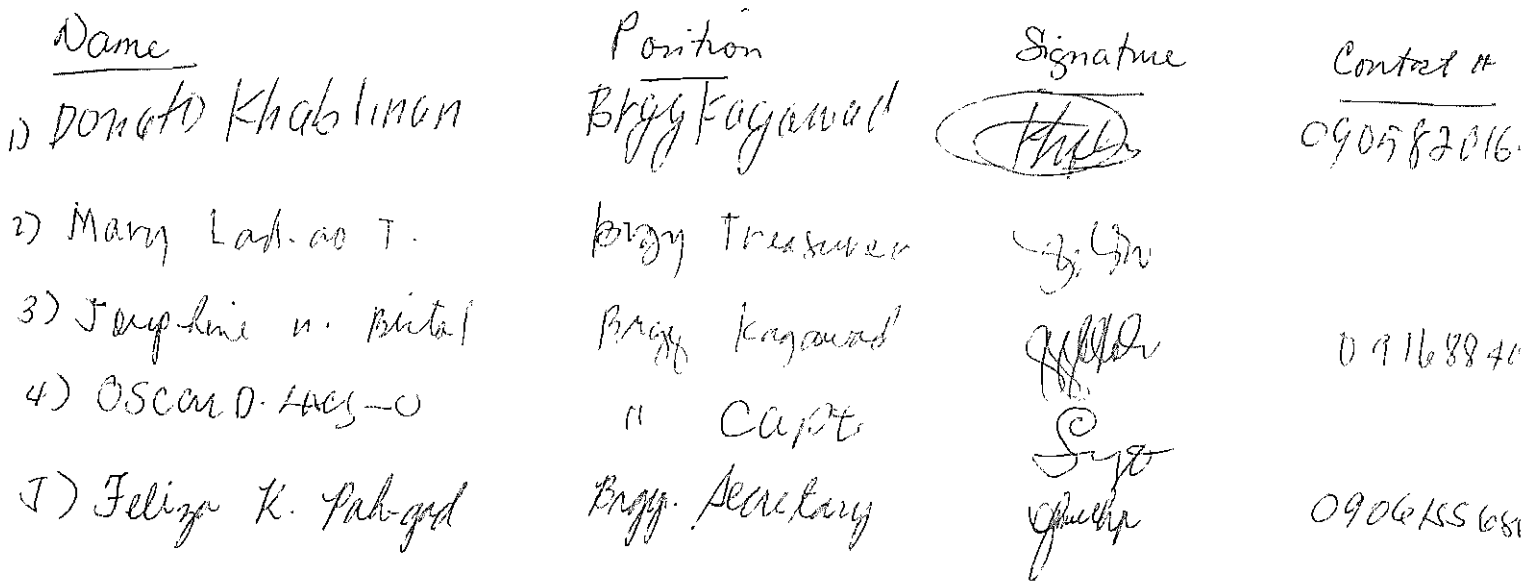 Name Position Signature Contact #
1) Donato Khablinan Brgy Kagawad 090582016
2) Mary Lad-ao T. brgy Treasurer
3) Josephine n. Bistal Brgy Kagawad 09168840
4) OSCAR D. " Capt.
5) Feliza K. Pah-gad Brgy. Secretary 0906155